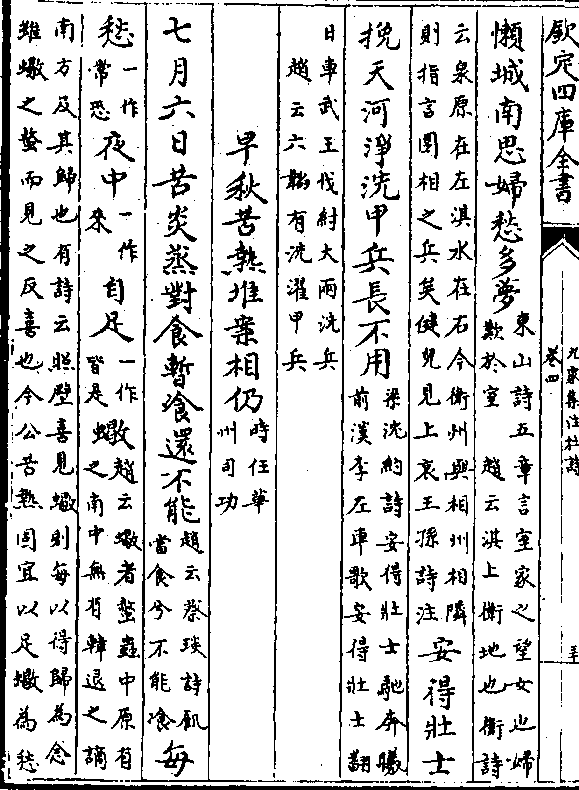 欽定四庫全書
九家集注杜詩
卷四
懶城南思婦愁多夢
東山詩五章言室家之望女也婦
歎於室 趙云淇上衛地也衛詩
云泉原在左淇水在右今衛州與相州相隣
則指言圍相之兵矣健兒見上哀王孫詩注
安得壯士
挽天河淨洗甲兵長不用
梁沈約詩安得壯士馳奔曦
前漢李左車歌安得壯士翻
日車武王伐紂大雨洗兵
趙云六韜有洗濯甲兵
早秋苦熱堆案相仍
時任華
州司功
七月六日苦炎蒸對食暫飡還不能
趙云蔡琰詩飢
當食兮不能飡
每
愁
一作
常恐
夜中
一作
來
自足
一作
皆是
蠍
趙云蠍者螫蟲中原有
之南中無有韓退之謫
南方及其歸也有詩云照壁喜見蠍則每以得歸為念
雖蠍之螫而見之反喜也今公苦熱固宜以足蠍為愁